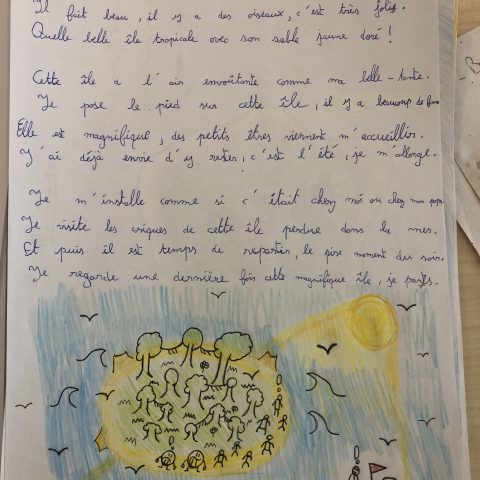 Il fait beau, il y a des oiseaux, c'est très joli.
Quelle belle île tropicale avec son sable jaune doré !
Cette île a l'air envoûtante comme ma belle-tante.
Je pose le pied sur cette île, il y a beaucoup de
Elle est magnifique, des petits êtres viennent m'accueillir.
J'ai déjà envie d'y rester, c'est l'été, je m'allonge.
Je m'installe comme si c'était chez moi ou chez mon papa
Je visite les criques de cette île perdue dans la mer.
Et puis il est temps de repartir, le pire moment du soir.
Je regarde une dernière fois cette magnifique île, je pars.